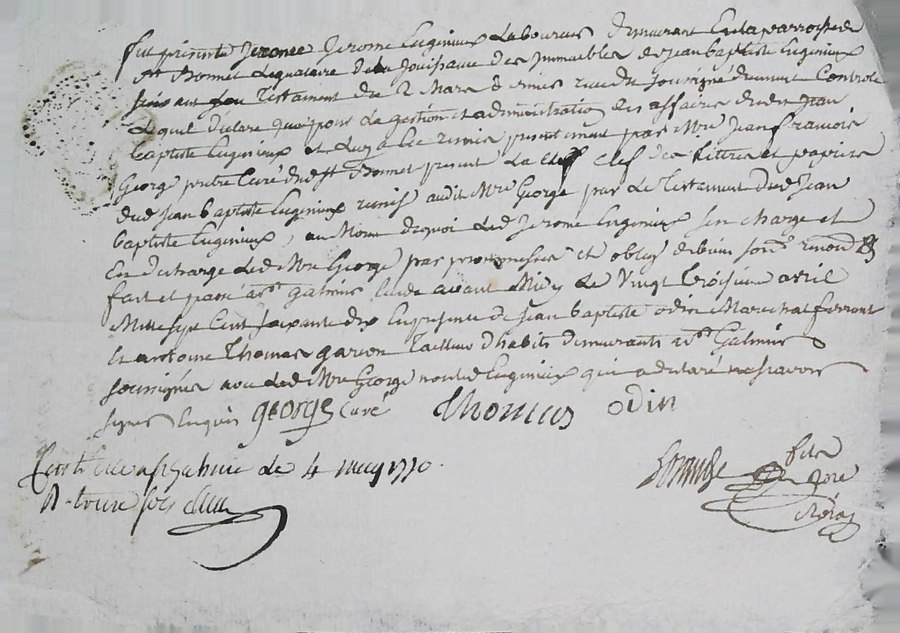 fut présente Jeronce Jerome Eugenieux Laboureur demeurant en la parroisse de
St Bonnet Legataire de la Jouissance des Immeubles de Jean baptiste Eugenieux
aux son Testament du 2 Mars dernier receu du soussigné duement Controlé
Lequel declare que pour la gestion et administration des affaires dudit Jean
baptiste Eugenieux et Luy a été remis presentement par Mre Jean françois
George pretre Curé dudt St Bonnet present La clef clef des Lettres et papiers
dud Jean baptiste Eugenieux remis audit Mre George par Le Testament dud Jean
baptiste Eugenieux, au Moien dequoi Led Jerome Eugenieux sen charge et
En decharge Led Mre George par promesses et oblig de biens
fait et passé a St galmier Etude avant Midy Le Vingt troisieme avril
Mille sept Cent soixante dix En presence de Jean baptiste odin Marechal ferrant
Et antoine Thomas garcon Tailleur dhabits demeurants a St Galmier
soussignés avec Led Mre George non led Eugenieux qui a declaré ne scavoir
signer Enquis george Curé thomas odin
Controlé a St Galmier le 4 may 1770
R treize sols
fils
nore
Roial